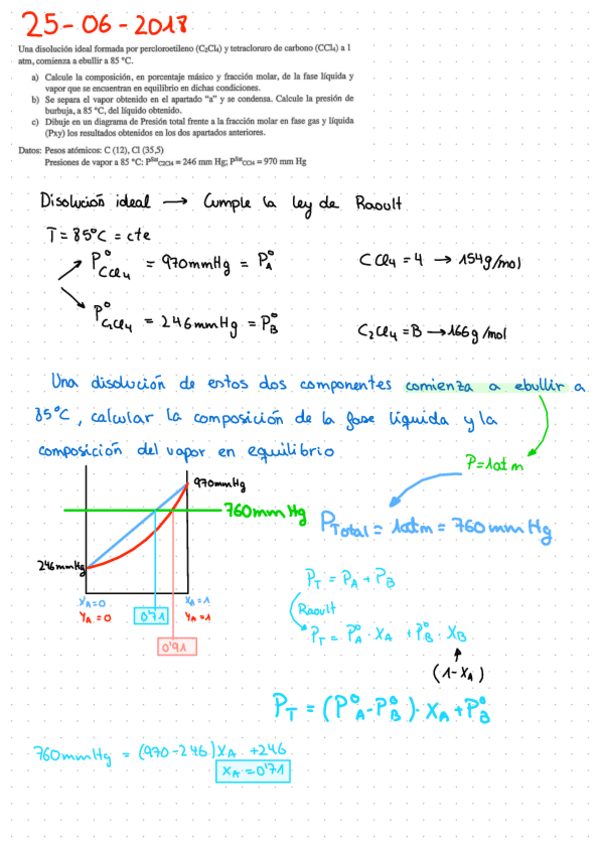 25-06-2018
Una disolución ideal formada por percloroetileno (C₂Cl₄) y tetracloruro de carbono (CCl₄) a 1
atm, comienza a ebullir a 85 °C.
a) Calcule la composición, en porcentaje másico y fracción molar, de la fase líquida y
vapor que se encuentran en equilibrio en dichas condiciones.
b) Se separa el vapor obtenido en el apartado "a" y se condensa. Calcule la presión de
burbuja, a 85 °C, del líquido obtenido.
c) Dibuje en un diagrama de Presión total frente a la fracción molar en fase gas y líquida
(Pxy) los resultados obtenidos en los dos apartados anteriores.
Datos: Pesos atómicos: C (12), Cl (35,5)
Presiones de vapor a 85 °C: Pˢᵃᵗ C2Cl4 = 246 mm Hg; Pˢᵃᵗ CCl4 = 970 mm Hg
Disolución ideal → Cumple la ley de Raoult
T = 85°C = cte
P°CCl₄ = 970mmHg = P°A
CCl₄ = 4 → 154g/mol
P°C₂Cl₄ = 246mmHg = P°B
C₂Cl₄ = B → 166g/mol
Una disolución de estos dos componentes comienza a ebullir a
85°C, calcular la composición de la fase líquida y la
composición del vapor en equilibrio
P=1atm
970mmHg
760mmHg
P Total = 1atm = 760mmHg
246mmHg
XA=0
XA=1
YA=0
0'71
YA=1
0'91
PT = PA + PB
Raoult
PT = P°A · XA + P°B · XB
(1-XA)
PT = (P°A-P°B)·XA+P°B
760mmHg = (970-246)XA +246
XA=0'71